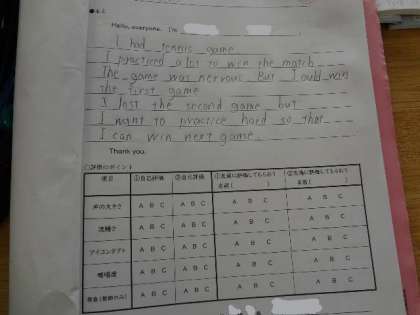 ●本文
Hello, everyone. I'm
I had tennis game
I practiced a lot to win the match
The game was nervous But I ould win
the first game
I lost the second game but
I want to practice hard so that
I can win next game.
Thank you.
項目 ①自己評価 ②自己評価 ①友達に評価してもらおう ②友達に評価してもらおう
名前( ) 名前( )
声の大きさ A B C A B C A B C A B C
流暢さ A B C A B C A B C A B C
アイコンタクト A B C A B C A B C A B C
A B C A B C A B C A B C
A B C A B C A B C A B C